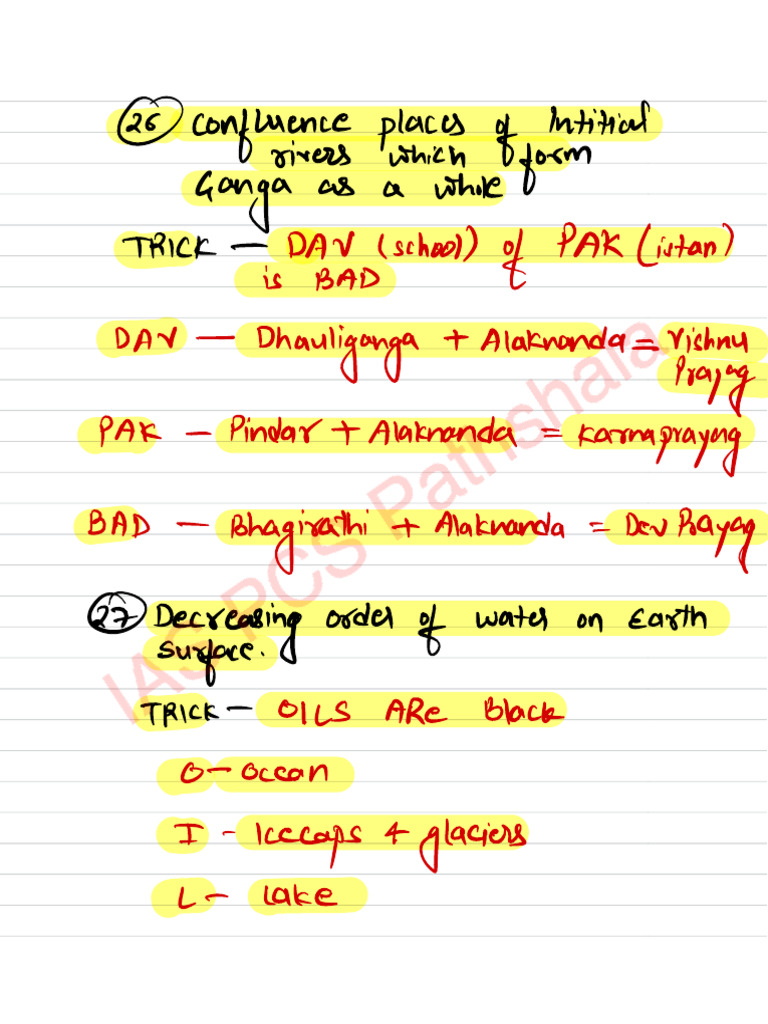 26 Confluence places of Intitial
rivers which form
Ganga as a whole
TRICK — DAV (school) of PAK (istan)
is BAD
DAV — Dhauliganga + Alaknanda = Vishnu
Prayag
PAK — Pindar + Alaknanda = Karnaprayag
BAD — Bhagirathi + Alaknanda = Dev Prayag
27 Decreasing order of water on Earth
surface.
TRICK — OILS ARe Black
O — Ocean
I — Icecaps & glaciers
L — Lake
IAS PCS Pathshala